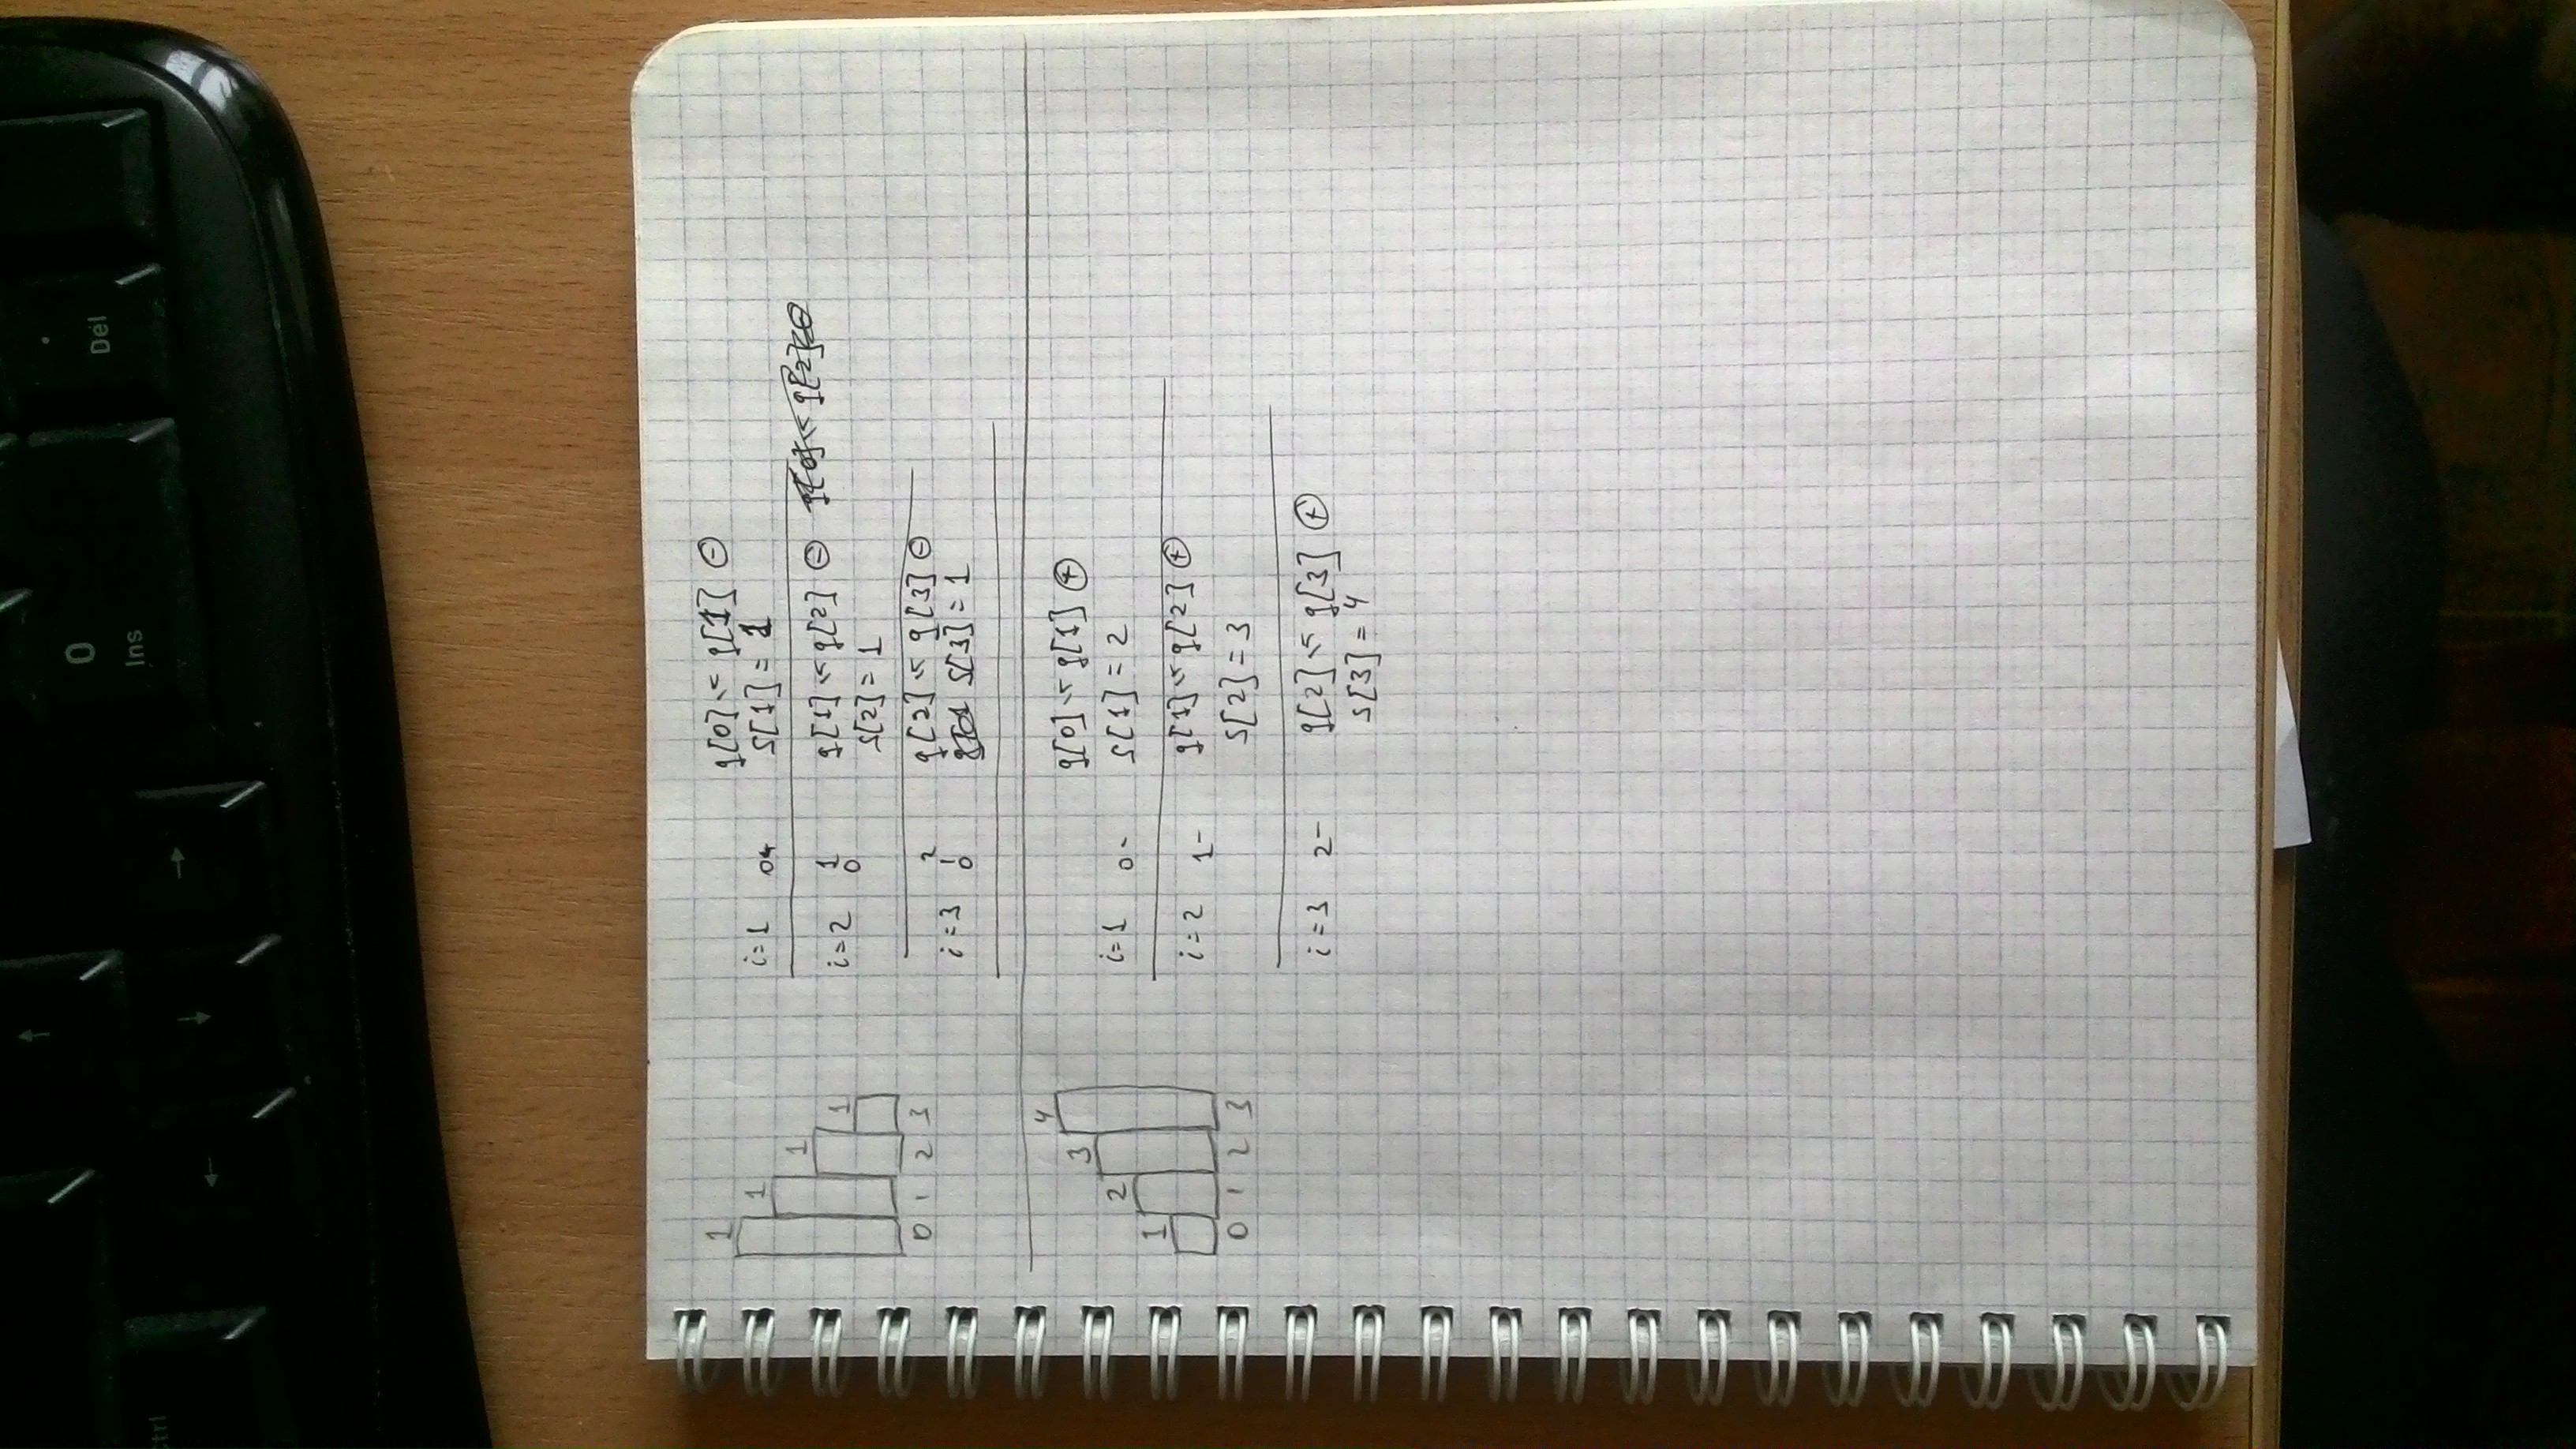 0
Ins
.
Del
Ctrl
↑
← ↓ →
1
1
1
1
0 1 2 3
g[0] ≤ g[1] ⊖
i=1 0
S[1] = 1
i=2 1 0
g[1] ≤ g[2] ⊖
S[2] = 1
i=3 2 1 0
g[2] ≤ g[3] ⊖
S[3] = 1
1
2
3
4
0 1 2 3
g[0] ≤ g[1] ⊕
i=1 0-
S[1] = 2
i=2 1-
g[1] ≤ g[2] ⊕
S[2] = 3
i=3 2-
g[2] ≤ g[3] ⊕
S[3] = 4